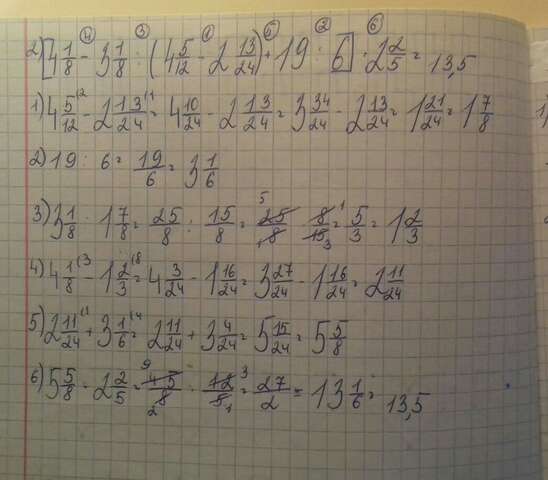 ④ ③ ① ⑤ ② ⑥
2) [4 1/8 - 3 1/8 : (4 5/12 - 2 13/24) + 19 : 6] · 2 2/5 = 13,5
1) 4 5/12 (2 - 2 13/24 (1 = 4 10/24 - 2 13/24 = 3 34/24 - 2 13/24 = 1 21/24 = 1 7/8
2) 19 : 6 = 19/6 = 3 1/6
3) 3 1/8 : 1 7/8 = 25/8 : 15/8 = 5 25/8 1 · 8/15 1 3 = 5/3 = 1 2/3
4) 4 1/8 (3 - 1 2/3 (8 = 4 3/24 - 1 16/24 = 3 27/24 - 1 16/24 = 2 11/24
5) 2 11/24 (1 + 3 1/6 (4 = 2 11/24 + 3 4/24 = 5 15/24 = 5 5/8
6) 5 5/8 · 2 2/5 = 9 45/8 2 · 12/5 3 1 = 27/2 = 13 1/6 = 13,5